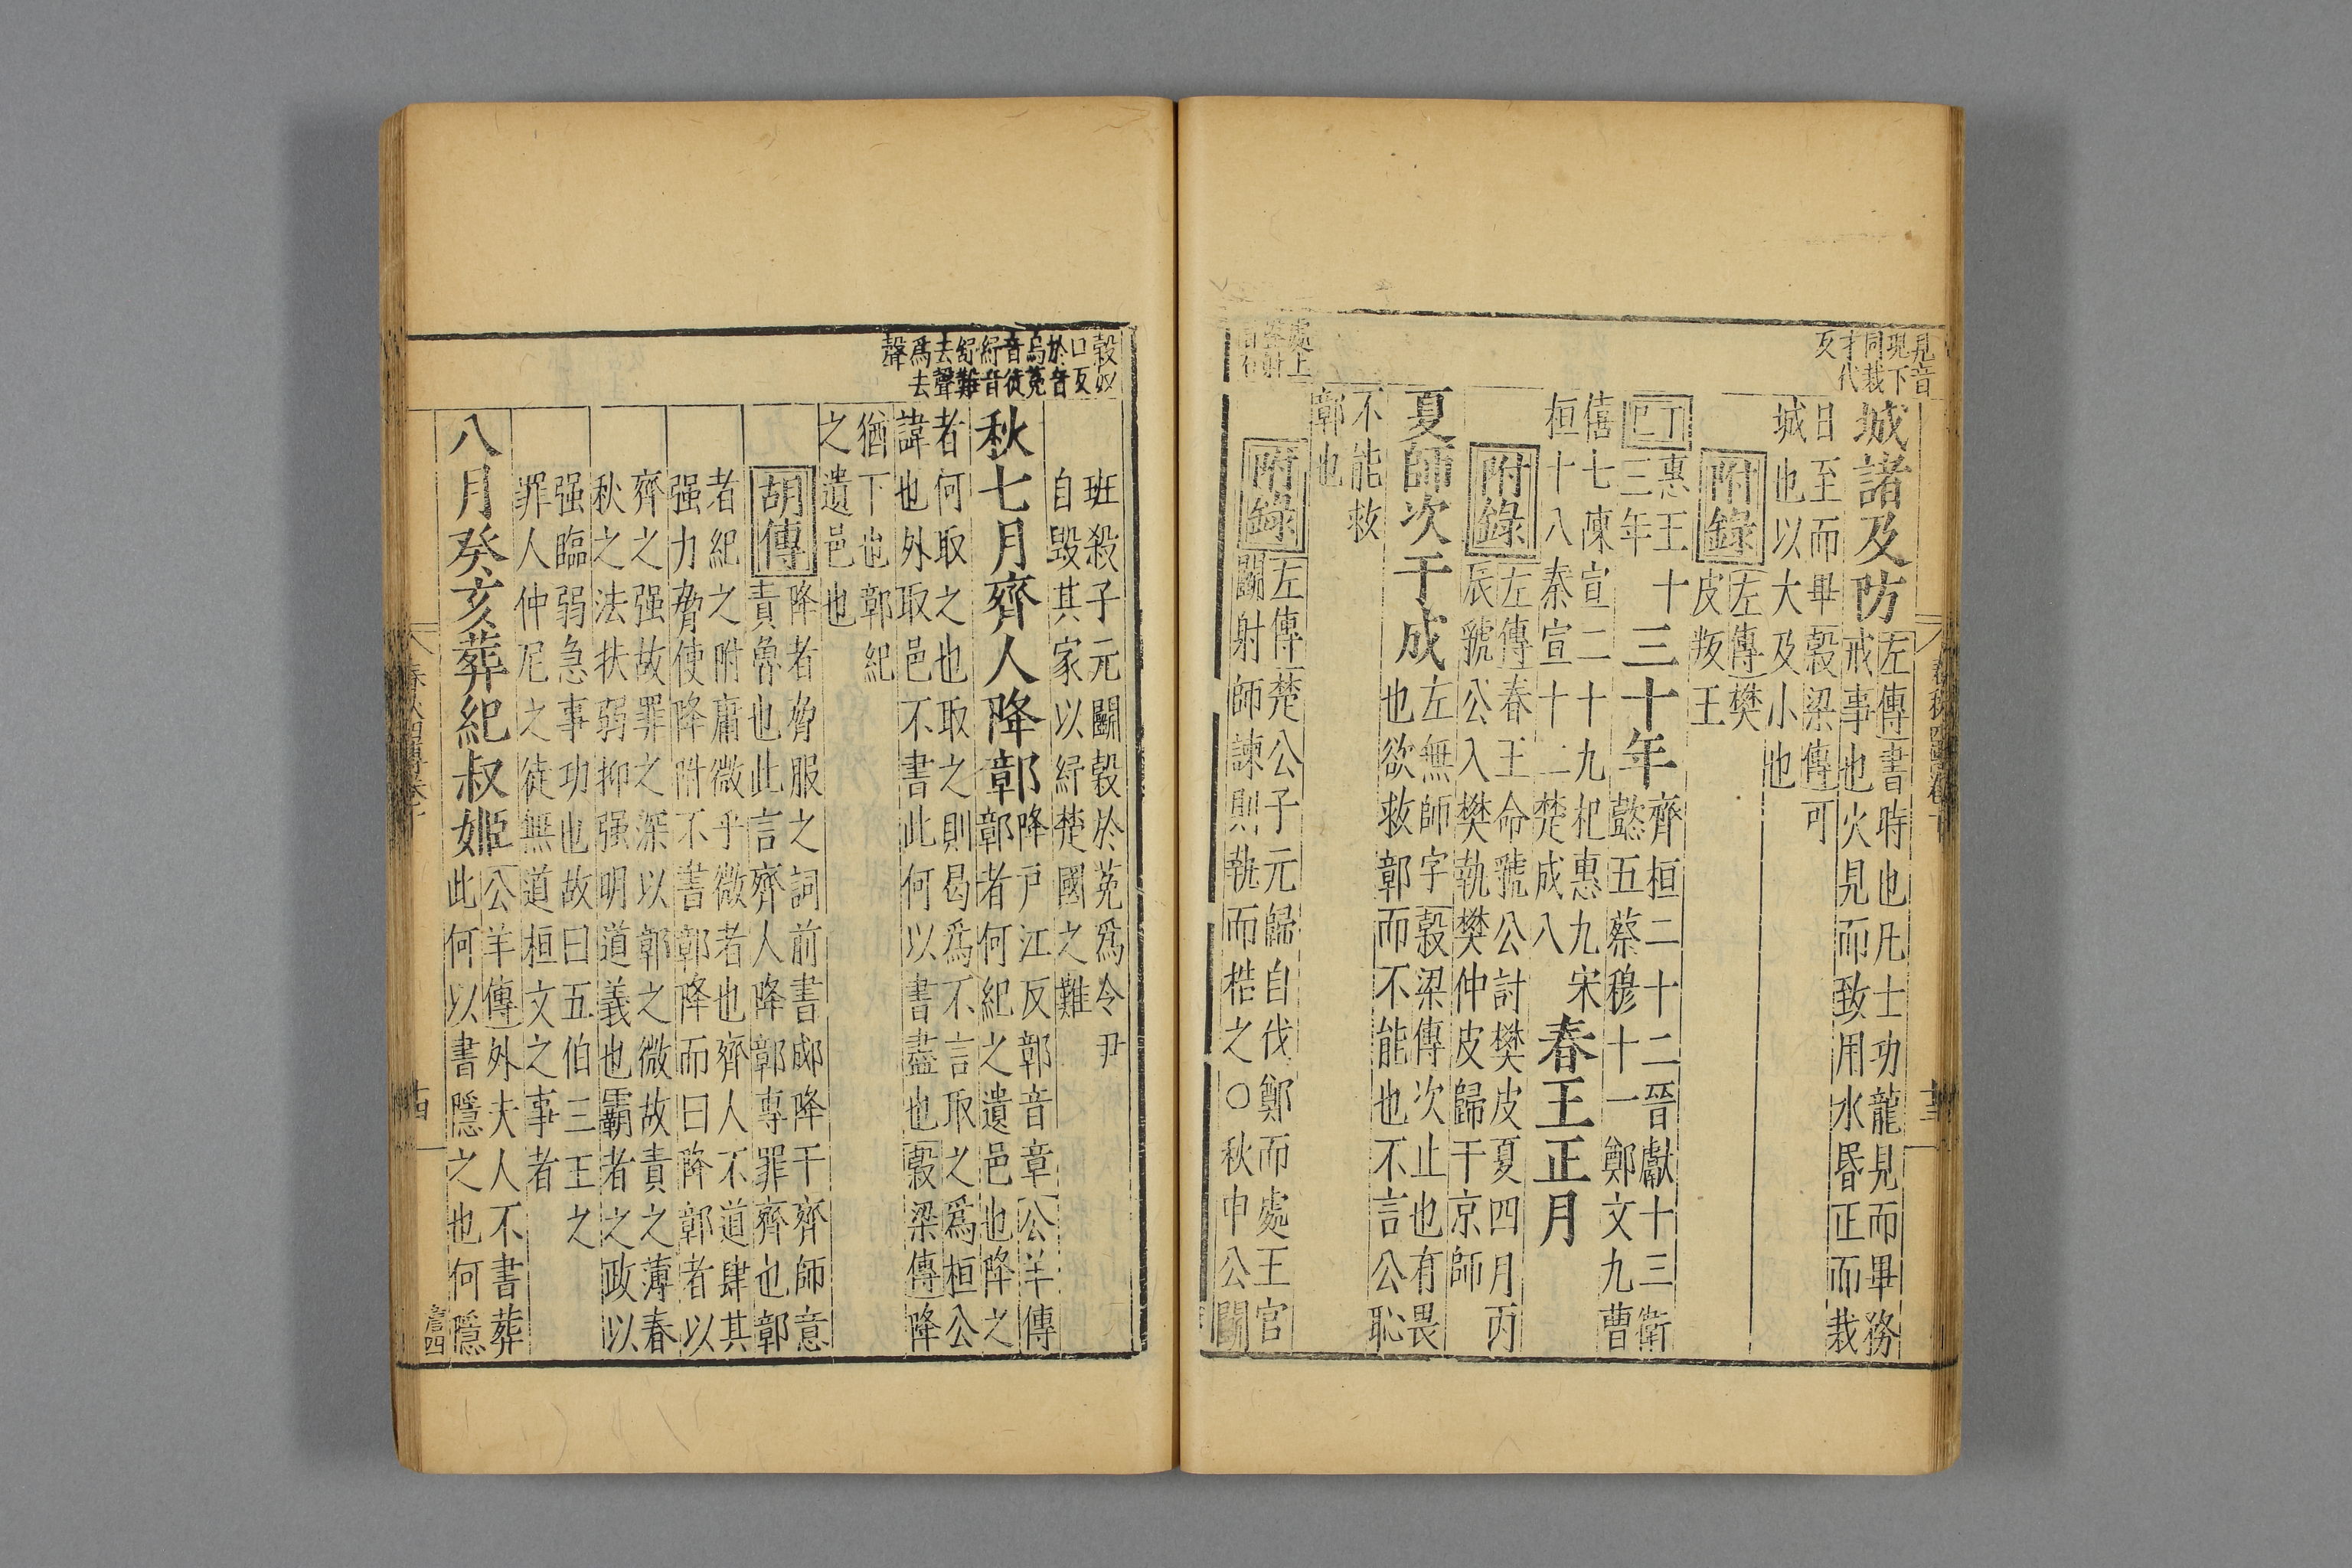 見音
現下
同栽
才代
反
城諸及防左傳書時也凡土功龍見而畢務
戒事也火見而致用水昏正而栽
日至而畢穀梁傳可
城也以大及小也
附錄左傳樊
皮叛王
丁巳
惠王十
三年
三十年齊桓二十二晉獻十三衛
懿五蔡穆十一鄭文九曹
僖七陳宣二十九杞惠九宋
桓十八秦宣十二楚成八
春王正月
附錄左傳春王命虢公討樊皮夏四月丙
辰虢公入樊執樊仲皮歸于京師
夏師次于成左無師字穀梁傳次止也有畏
也欲救鄣而不能也不言公恥
不能救
鄣也
處上
聲射
音石
附錄左傳楚公子元歸自伐鄭而處王官
鬭射師諫則執而梏之○秋申公鬭
穀奴
口反
於音
烏菟
音徒
紓音
舒難
去聲
爲去
聲
班殺子元鬭穀於菟爲令尹
自毀其家以紓楚國之難
秋七月齊人降鄣降戶江反鄣音章公羊傳
鄣者何紀之遺邑也降之
者何取之也取之則曷爲不言取之爲桓公
諱也外取邑不書此何以書盡也穀梁傳降
猶下也鄣紀
之遺邑也
胡傳降者脅服之詞前書郕降于齊師意
責魯也此言齊人降鄣專罪齊也鄣
者紀之附庸微乎微者也齊人不道肆其
强力脅使降附不書鄣降而曰降鄣者以
齊之强故罪之深以鄣之微故責之薄春
秋之法扶弱抑强明道義也霸者之政以
强臨弱急事功也故曰五伯三王之
罪人仲尼之徒無道桓文之事者
八月癸亥葬紀叔姬公羊傳外夫人不書葬
此何以書隱之也何隱
十四
詹四